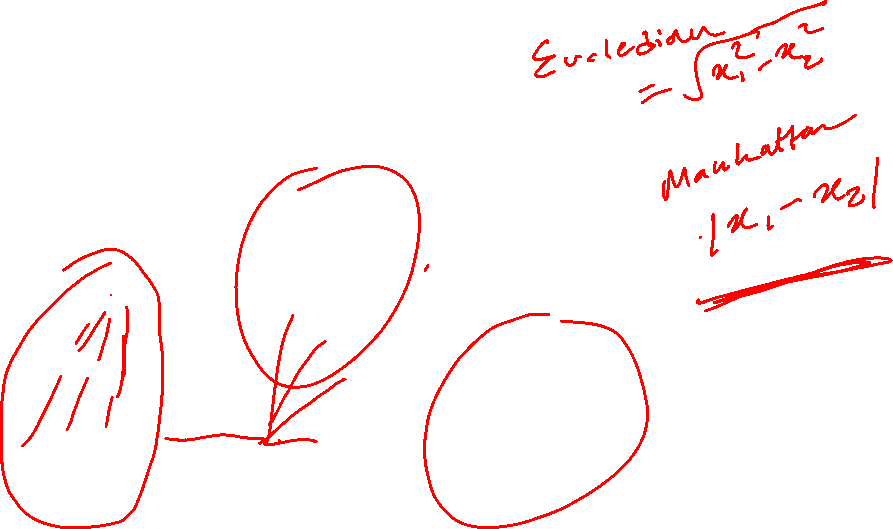 Eucledian
= √x₁² - x₂²
Manhattan
|x₁ - x₂|